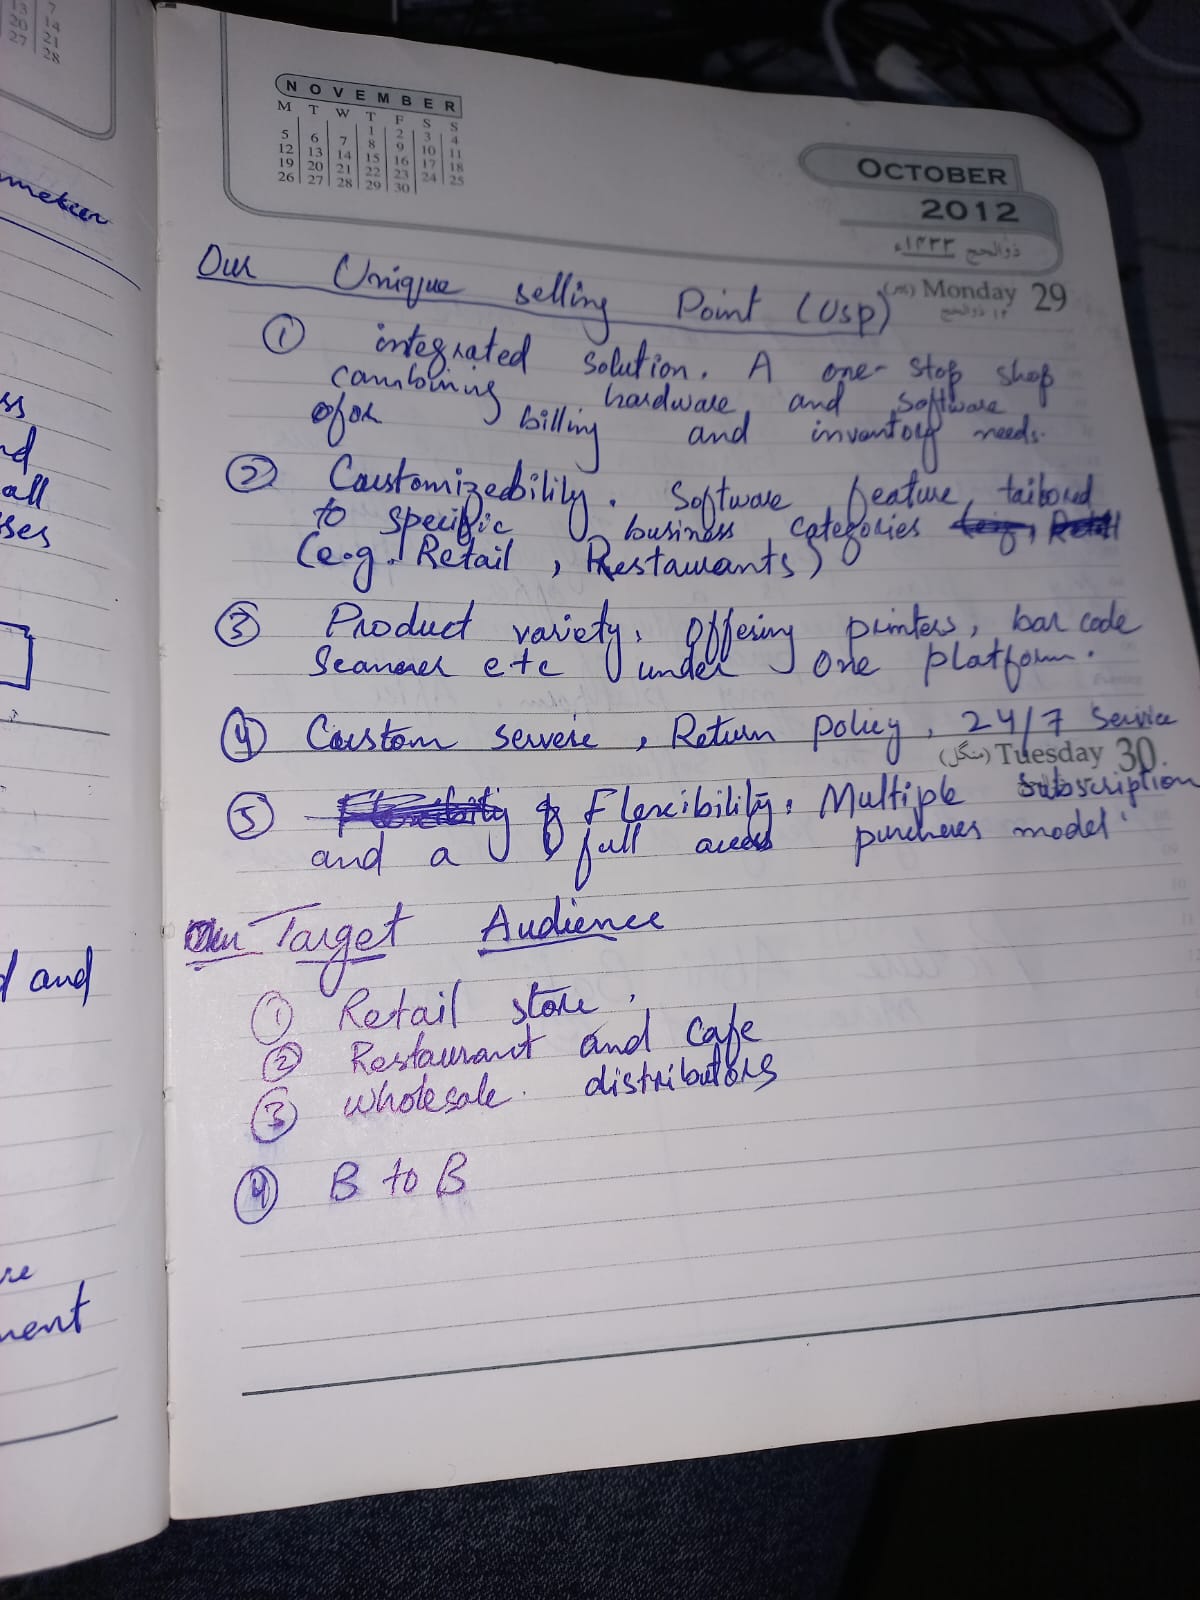 13 7
20 14
27 21
28
NOVEMBER
M T W T F S S
1 2 3 4
5 6 7 8 9 10 11
12 13 14 15 16 17 18
19 20 21 22 23 24 25
26 27 28 29 30
OCTOBER
2012
ذوالحج ١٤٣٣ء
Monday 29
Our Unique selling Point (USP)
① integrated solution. A one-stop shop
combining hardware and software
for billing and inventory needs.
② Customizedbility. Software feature tailored
to specific business categories
(e.g. Retail, Restaurants)
③ Product variety. Offering printers, bar code
Scanner etc under one platform.
④ Custom servere, Return policy, 24/7 Service
(منگل) Tuesday 30
⑤ Flexibility. Multiple subscription
and a full access purcheres model.
Our Target Audience
① Retail store,
② Restaurant and Cafe
③ wholesale. distributors
④ B to B
ss
nd
all
sses
d and
re
ment